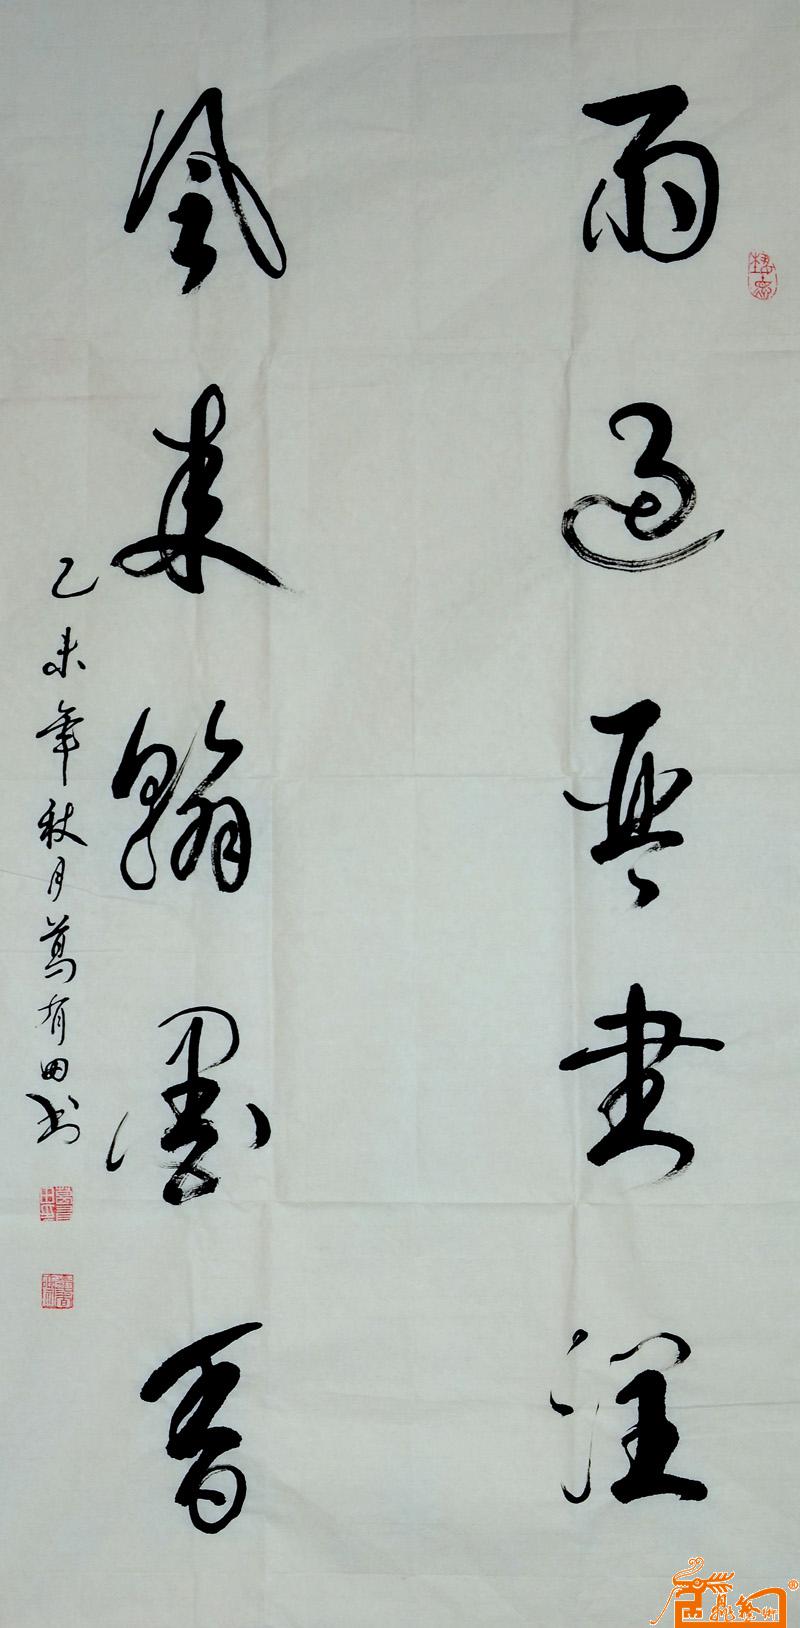 雨过琴书润
风来翰墨香
乙未年秋月葛有田书